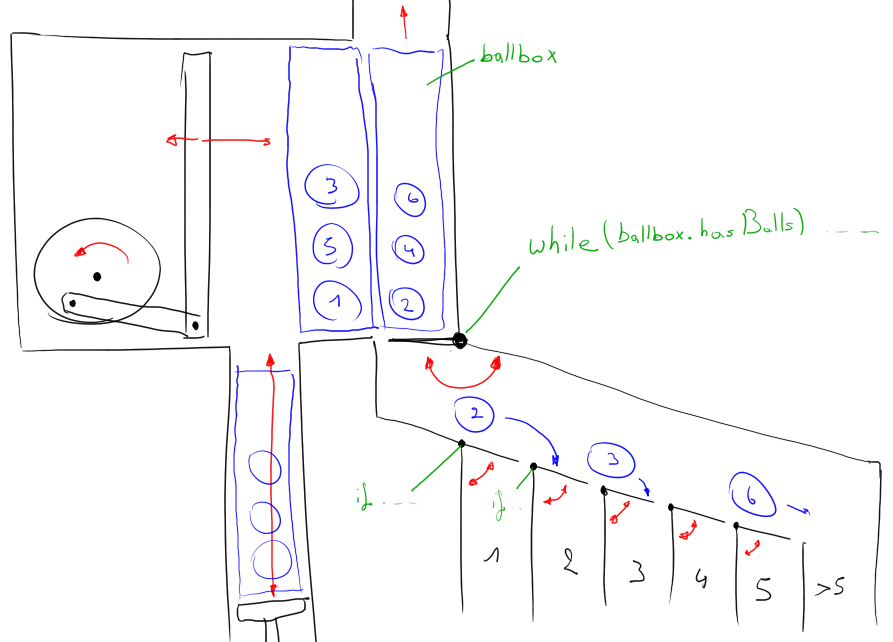 ballbox
3
6
5
4
1
2
while (ballbox.hasBalls) ----
2
3
6
if ----
if..
1
2
3
4
5
>5